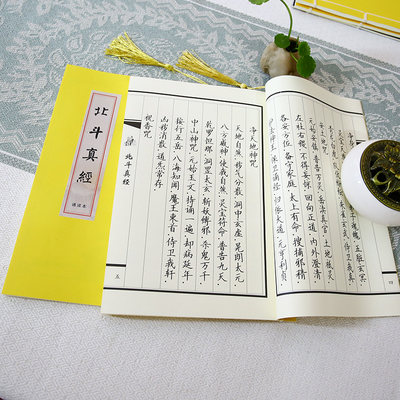 安土地神咒
元始安鎮.普告萬靈.嶽瀆真官.土地祇靈
左社右稷.不得妄驚.回向正道.內外澄清
各安方位.備守家庭.太上有命.搜捕邪精
護法神王.保衛誦經.皈依大道.元亨利貞
四
淨天地神咒
天地自然.穢炁分散.洞中玄虛.晃朗太元
八方威神.使我自然.靈寶符命.普告九天
乾羅怛那.洞罡太玄.斬妖縛邪.殺鬼萬千
中山神咒.元始玉文.持誦一遍.卻病延年
按行五岳.八海知聞.魔王束首.侍卫我軒
凶穢消散.道炁常存
祝香咒
北斗真經
五
北斗真經
誦讀本